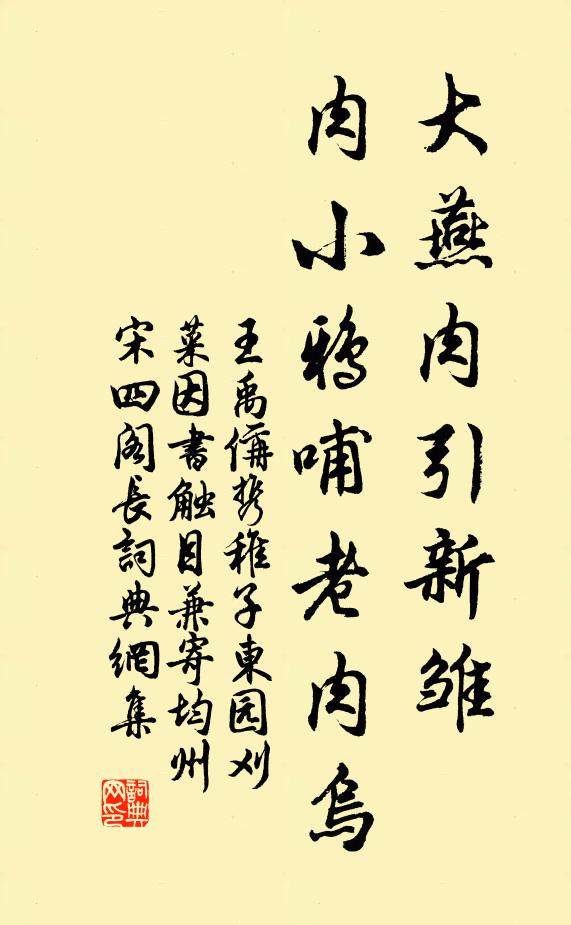 大燕肉引新雏
肉小鸦哺老肉乌
王禹偁携稚子東园刈
菜因書触目兼寄均州
宋四阁長詞典網集
詞典网印